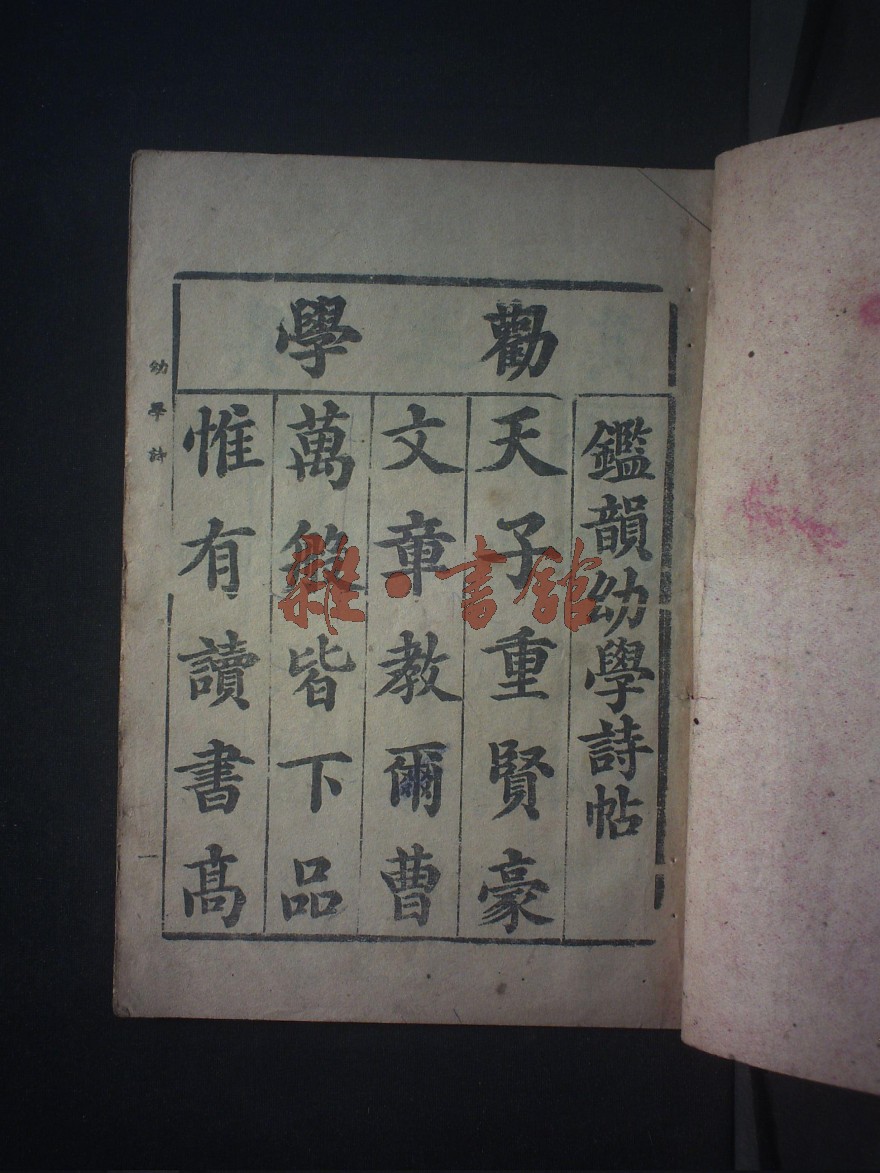 勸學
鑑韻幼學詩帖
天子重賢豪
文章教爾曹
萬般皆下品
惟有讀書高
幼學詩
雜·書館